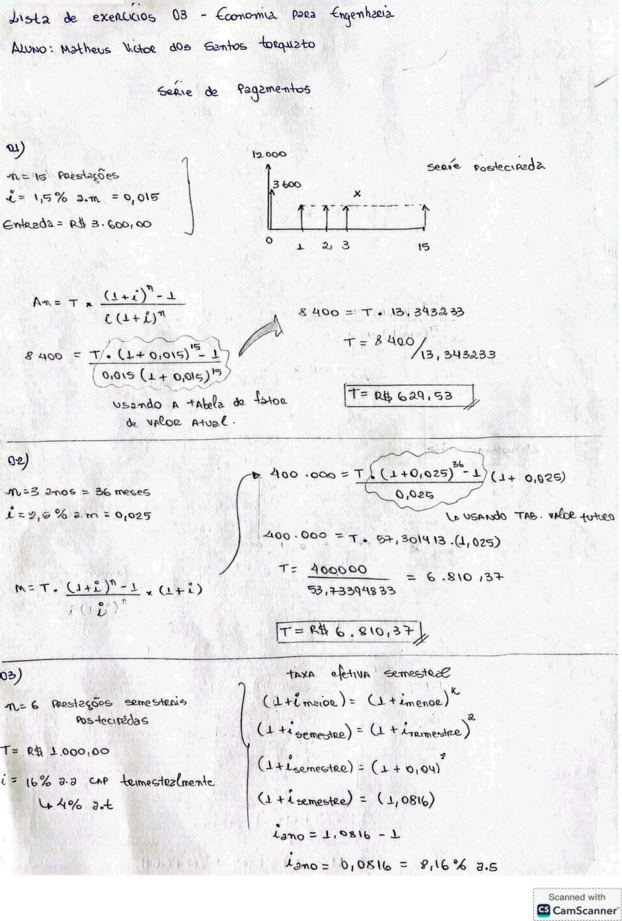 Lista de exercícios 03 - Economia para Engenharia
Aluno: Matheus Victor dos Santos torquato
Série de Pagamentos
01)
n= 15 Prestações
i= 1,5% a.m = 0,015
Entrada = R$ 3.600,00
12000
3600
x
0 1 2 3 15
serie Postecipada
An = T × (1+i)^n - 1 / i(1+i)^n
8 400 = T . (1+0,015)^15 - 1 / 0,015 (1+0,015)^15
usando A tabela de fator
de valor Atual.
8 400 = T . 13,343233
T = 8 400 / 13,343233
T = R$ 629,53
02)
n=3 anos = 36 meses
i = 2,5% a.m = 0,025
M = T . (1+i)^n - 1 / i × (1+i)
400.000 = T . (1+0,025)^36 - 1 / 0,025 (1+ 0,025)
↳ usando TAB. valor futuro
400.000 = T . 57,301413 . (1,025)
T = 400000 / 53,73394833 = 6.810,37
T = R$ 6.810,37
03)
n= 6 Prestações semestrais
Postecipadas
T= R$ 1.000,00
i = 16% a.a CAP trimestralmente
↳ 4% a.t
taxa efetiva semestral
(1+i maior) = (1+i menor)^k
(1+i semestre) = (1+i trimestre)^2
(1+i semestre) = (1+0,04)^2
(1+i semestre) = (1,0816)
i ano = 1,0816 - 1
i ano = 0,0816 = 8,16% a.s
Scanned with
CS CamScanner